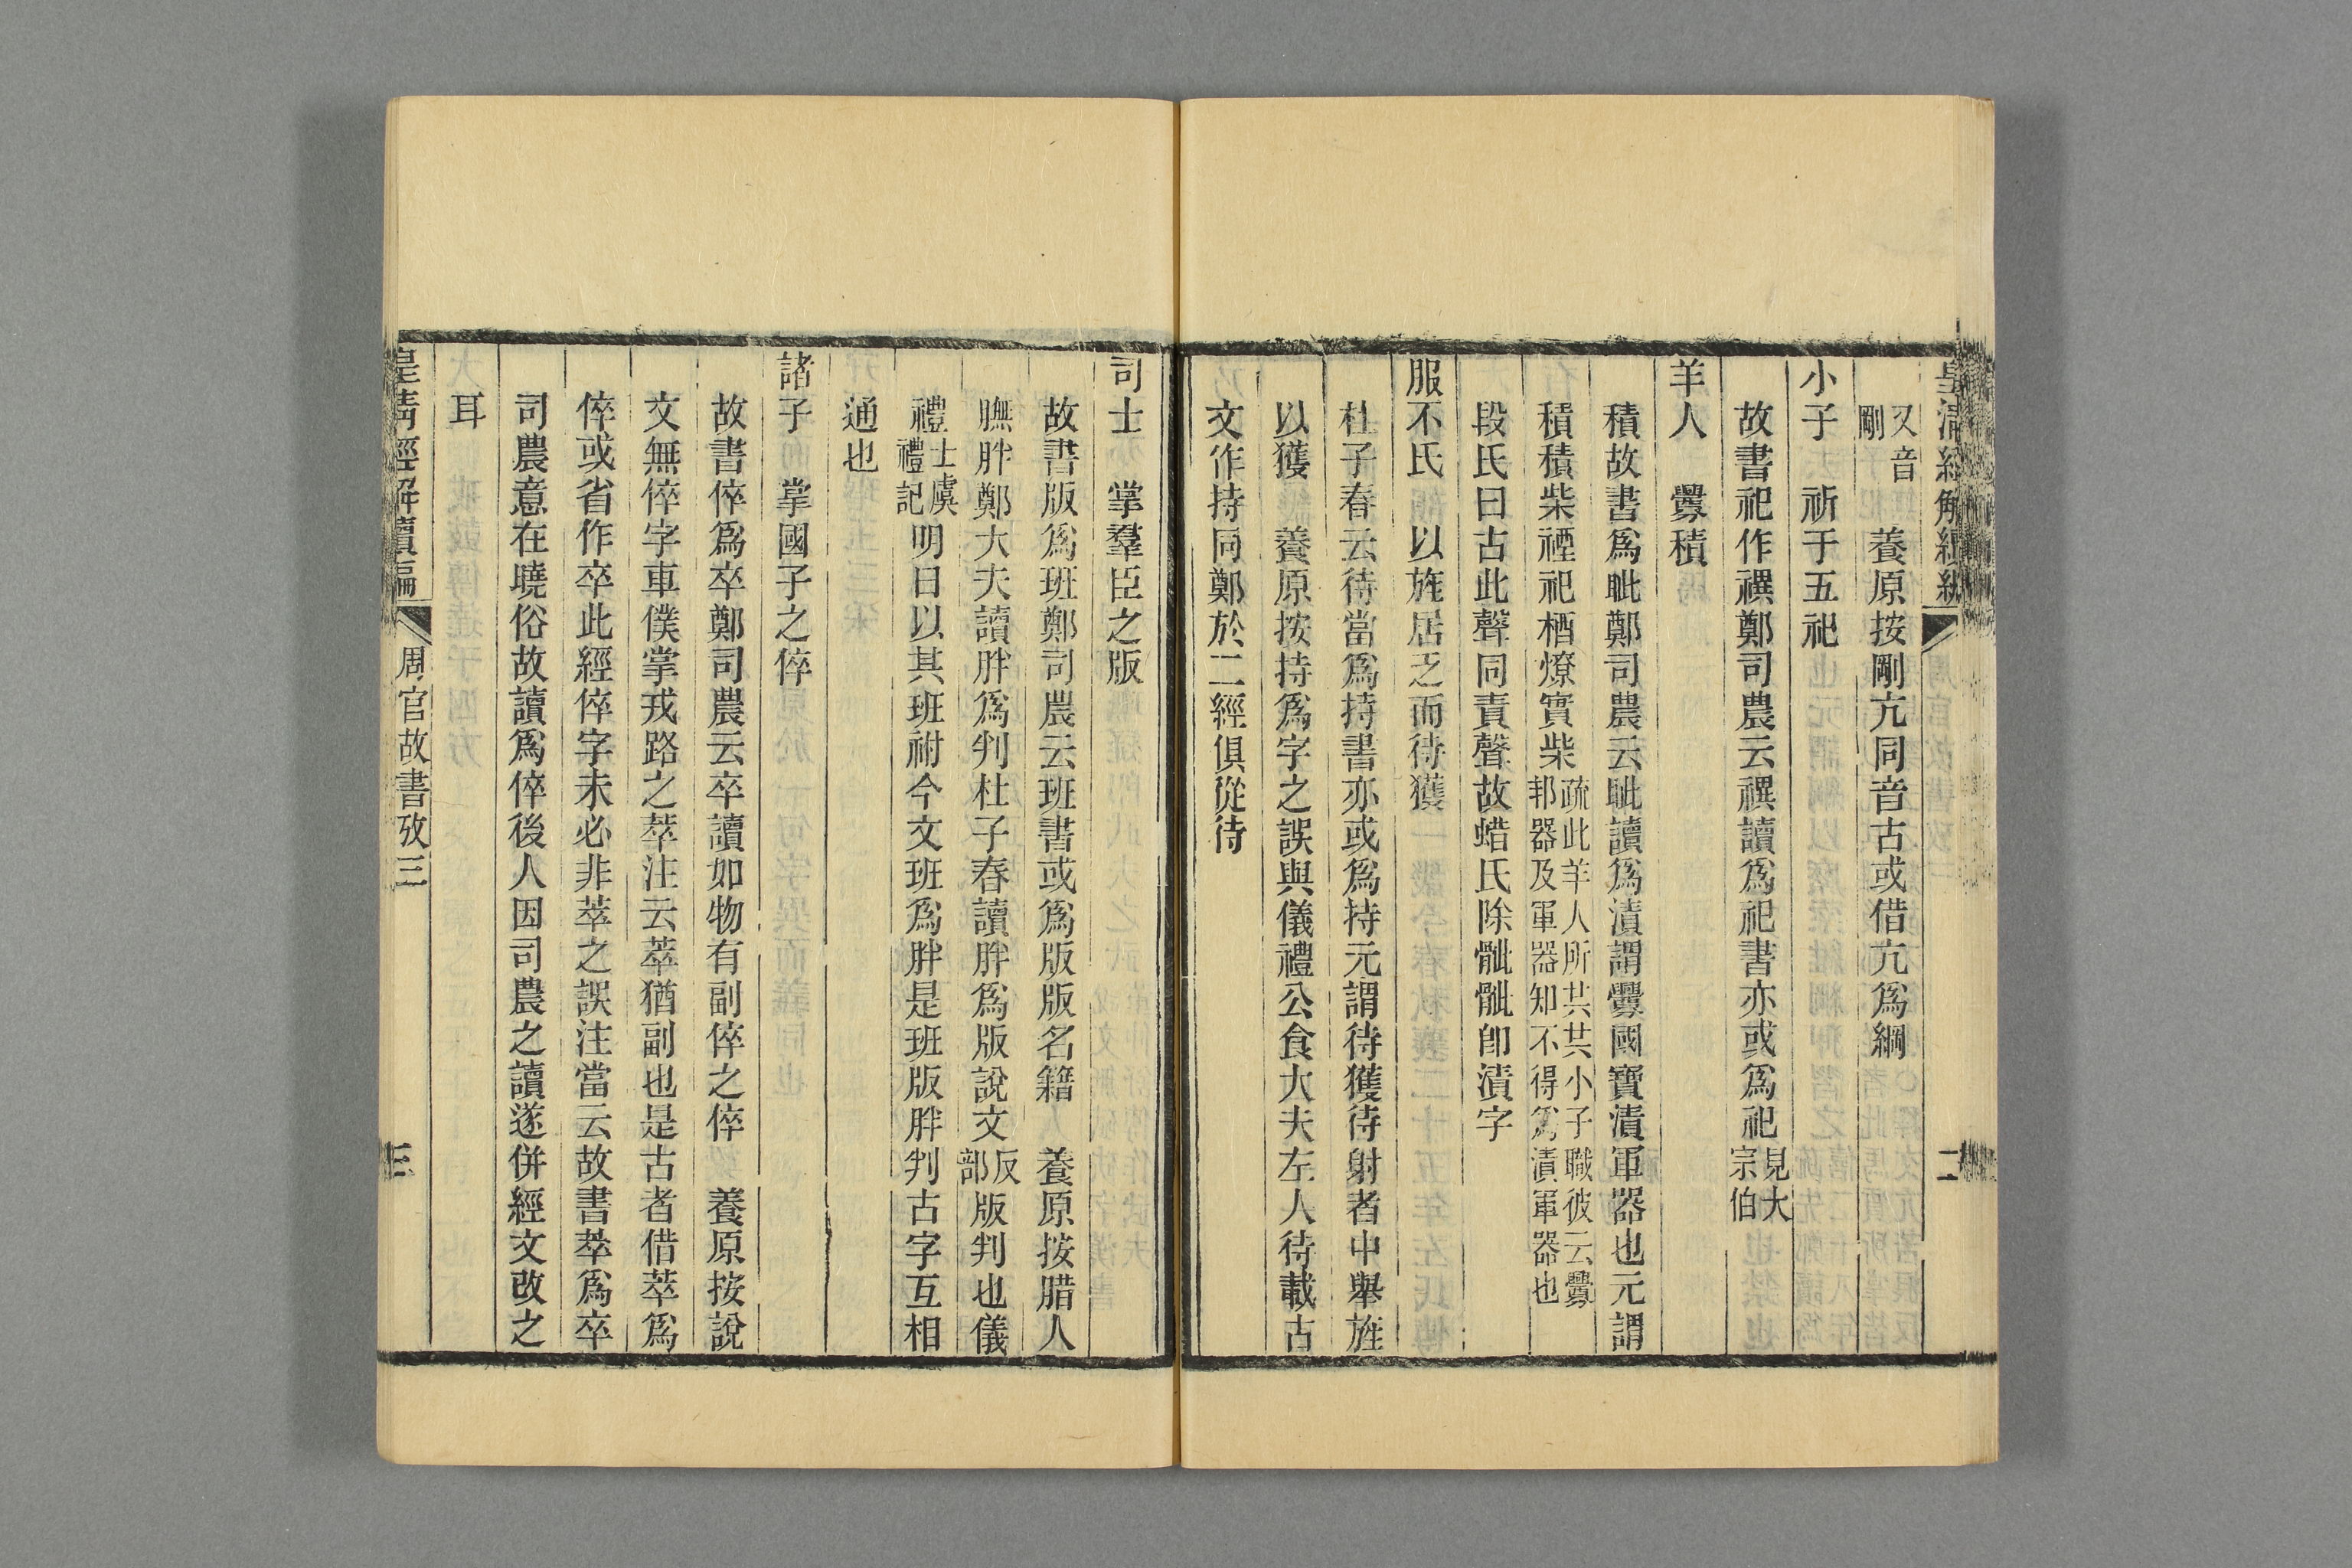 皇清經解續編
二
又音剛　養原按剛亢同音古或借亢爲綱
小子　祈于五祀
故書祀作禩鄭司農云禩讀爲祀書亦或爲祀見大宗伯
羊人　釁積
積故書爲眦鄭司農云眦讀爲漬謂釁國寶漬軍器也元謂
積積柴禋祀楢燎實柴疏此羊人所共共小子職彼云釁邦器及軍器知不得爲漬軍器也
段氏曰古此聲同責聲故蜡氏除骴骴卽漬字
服不氏　以旌居乏而待獲
杜子春云待當爲持書亦或爲持元謂待獲待射者中舉旌
以獲　養原按持爲字之誤與儀禮公食大夫左人待載古
文作持同鄭於二經俱從待
司士　掌羣臣之版
故書版爲班鄭司農云班書或爲版版名籍　養原按腊人
膴胖鄭大夫讀胖爲判杜子春讀胖爲版說文反部版判也儀
禮士虞禮記明日以其班祔今文班爲胖是班版胖判古字互相
通也
諸子　掌國子之倅
故書倅爲卒鄭司農云卒讀如物有副倅之倅　養原按說
文無倅字車僕掌戎路之萃注云萃猶副也是古者借萃爲
倅或省作卒此經倅字未必非萃之誤注當云故書萃爲卒
司農意在曉俗故讀爲倅後人因司農之讀遂併經文改之
耳
皇清經解續編　周官故書攷三
三